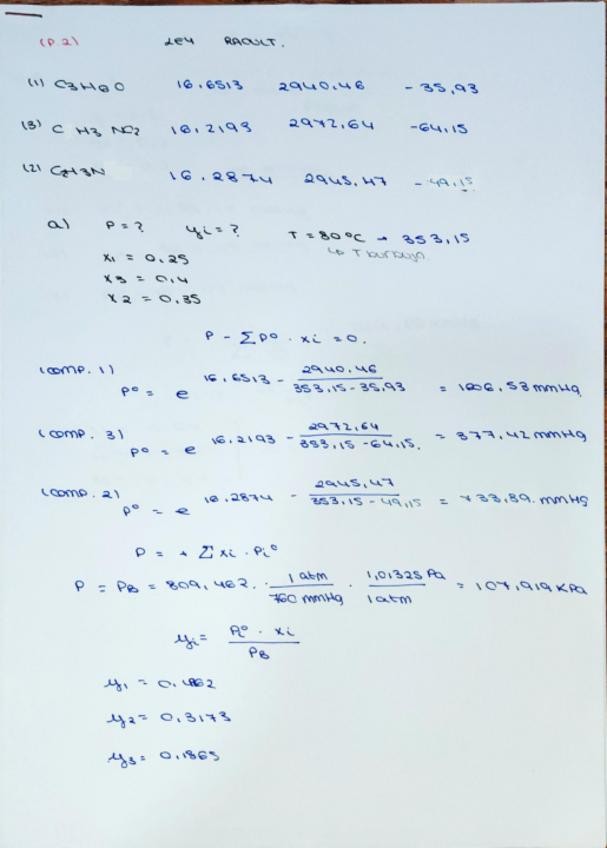 (P.2) LEY RAOULT.
(1) C3H6O 16.6513 2940.46 - 35,93
(3) C H3 NO2 16,2193 2972,64 -64,15
(2) C2H3N 16.2874 2945,47 - 49,15
a) P = ? yi = ? T = 80ºC → 353,15
x1 = 0.25 ↳ T burbuja.
x3 = 0,4
x2 = 0,35
P - Σ Pº · xi = 0.
(comp. 1) Pº = e 16,6513 - 2940.46 / 353,15 - 35,93 = 1606.53 mmHg
(comp. 3) Pº = e 16.2193 - 2972,64 / 353,15 - 64,15. = 377,42 mmHg
(comp. 2) Pº = e 16.2874 - 2945,47 / 353,15 - 49,15 = 733,89. mmHg
P = + Σ xi · Piº
P = PB = 809,462. · 1 atm / 760 mmHg · 1,01325 Pa / 1 atm = 107,919 KPa
yi = Piº · xi / PB
y1 = 0.4962
y2 = 0,3173
y3 = 0,1865